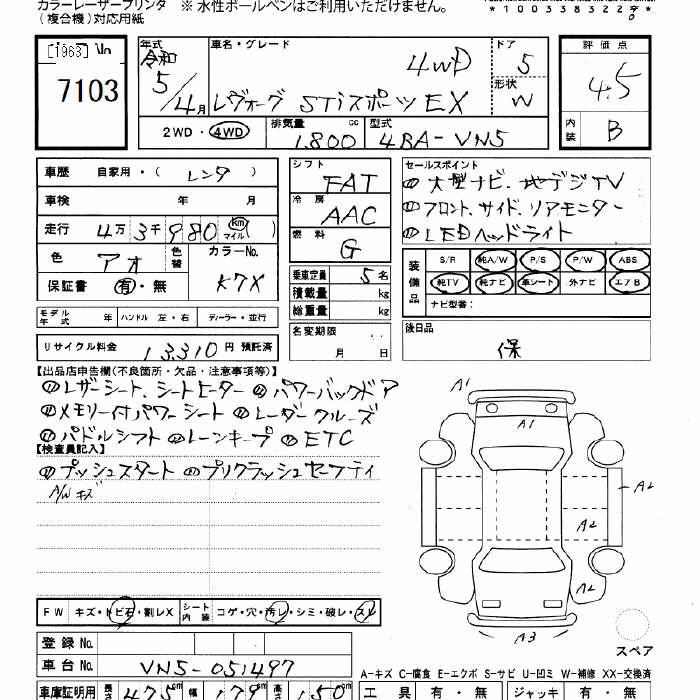 カラーレーザープリンタ ※ 水性ボールペンはご利用いただけません。
(複合機)対応用紙
*1003383229*
[1963]
7103
年式 令和 5/4月
車名・グレード 4WD
レヴォーグ STiスポーツ EX
ドア 5
形状 W
評価点 4.5
内装 B
2WD・4WD 排気量 1,800 cc 型式 4BA-VN5
車歴 自家用・(レンタ)
車検 年 月
走行 4万3千980 km マイル
色 アオ 色替 カラーNo. K7X
保証書 有・無
シフト FAT
冷房 AAC
燃料 G
乗車定員 5名
積載量 kg
総重量 kg
名変期限
月 日
セールスポイント
① 大型ナビ、地デジTV
② フロント、サイド、リアモニター
③ LEDヘッドライト
装備品 S/R 純A/W P/S P/W ABS
純TV 純ナビ 革シート 外ナビ エアB
ナビ型番:
後日品
保
モデル年式 年 ハンドル 左・右 ディーラー・並行
リサイクル料金 13,310円 預託済
【出品店申告欄(不良箇所・欠品・注意事項等)】
レザーシート、シートヒーター パワーバックドア
メモリー付パワーシート レーダークルーズ
パドルシフト レーンキープ ETC
【検査員記入】
プッシュスタート プリクラッシュセーフティ
A/Wキズ
A1
A1
A2
A2
A2
A3
スペア
FW キズ・トビ石・割レX シート内装 コゲ・穴・汚レ・シミ・破レ・スレ
登録No.
車台No. VN5-051497
A-キズ C-腐食 E-エクボ S-サビ U-凹ミ W-補修 XX-交換済
車庫証明用 長さ 475cm 幅 179cm 高さ 150cm
工具 有・無 ジャッキ 有・無